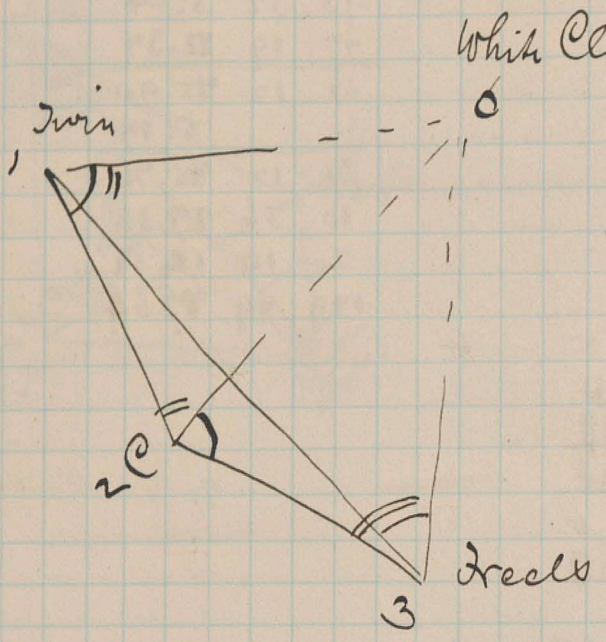 White Cl
Twin
1
2 C
Frecks
3